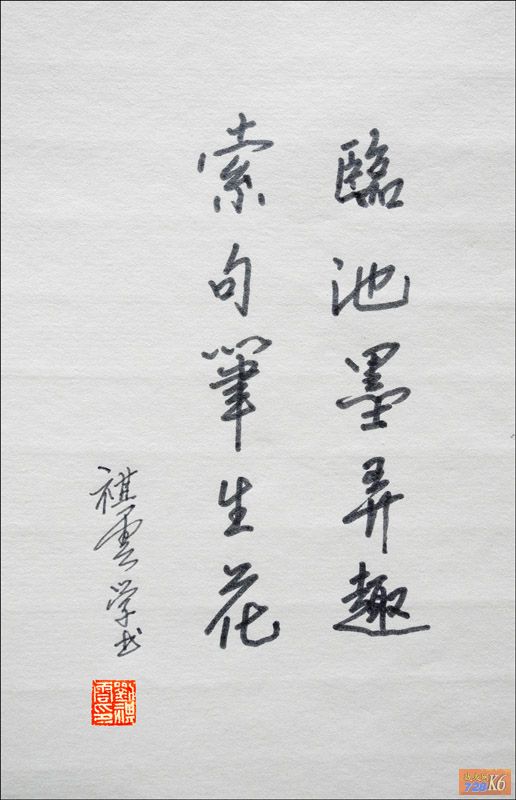 臨池墨弄趣
索句筆生花
祺雲学书
728K6